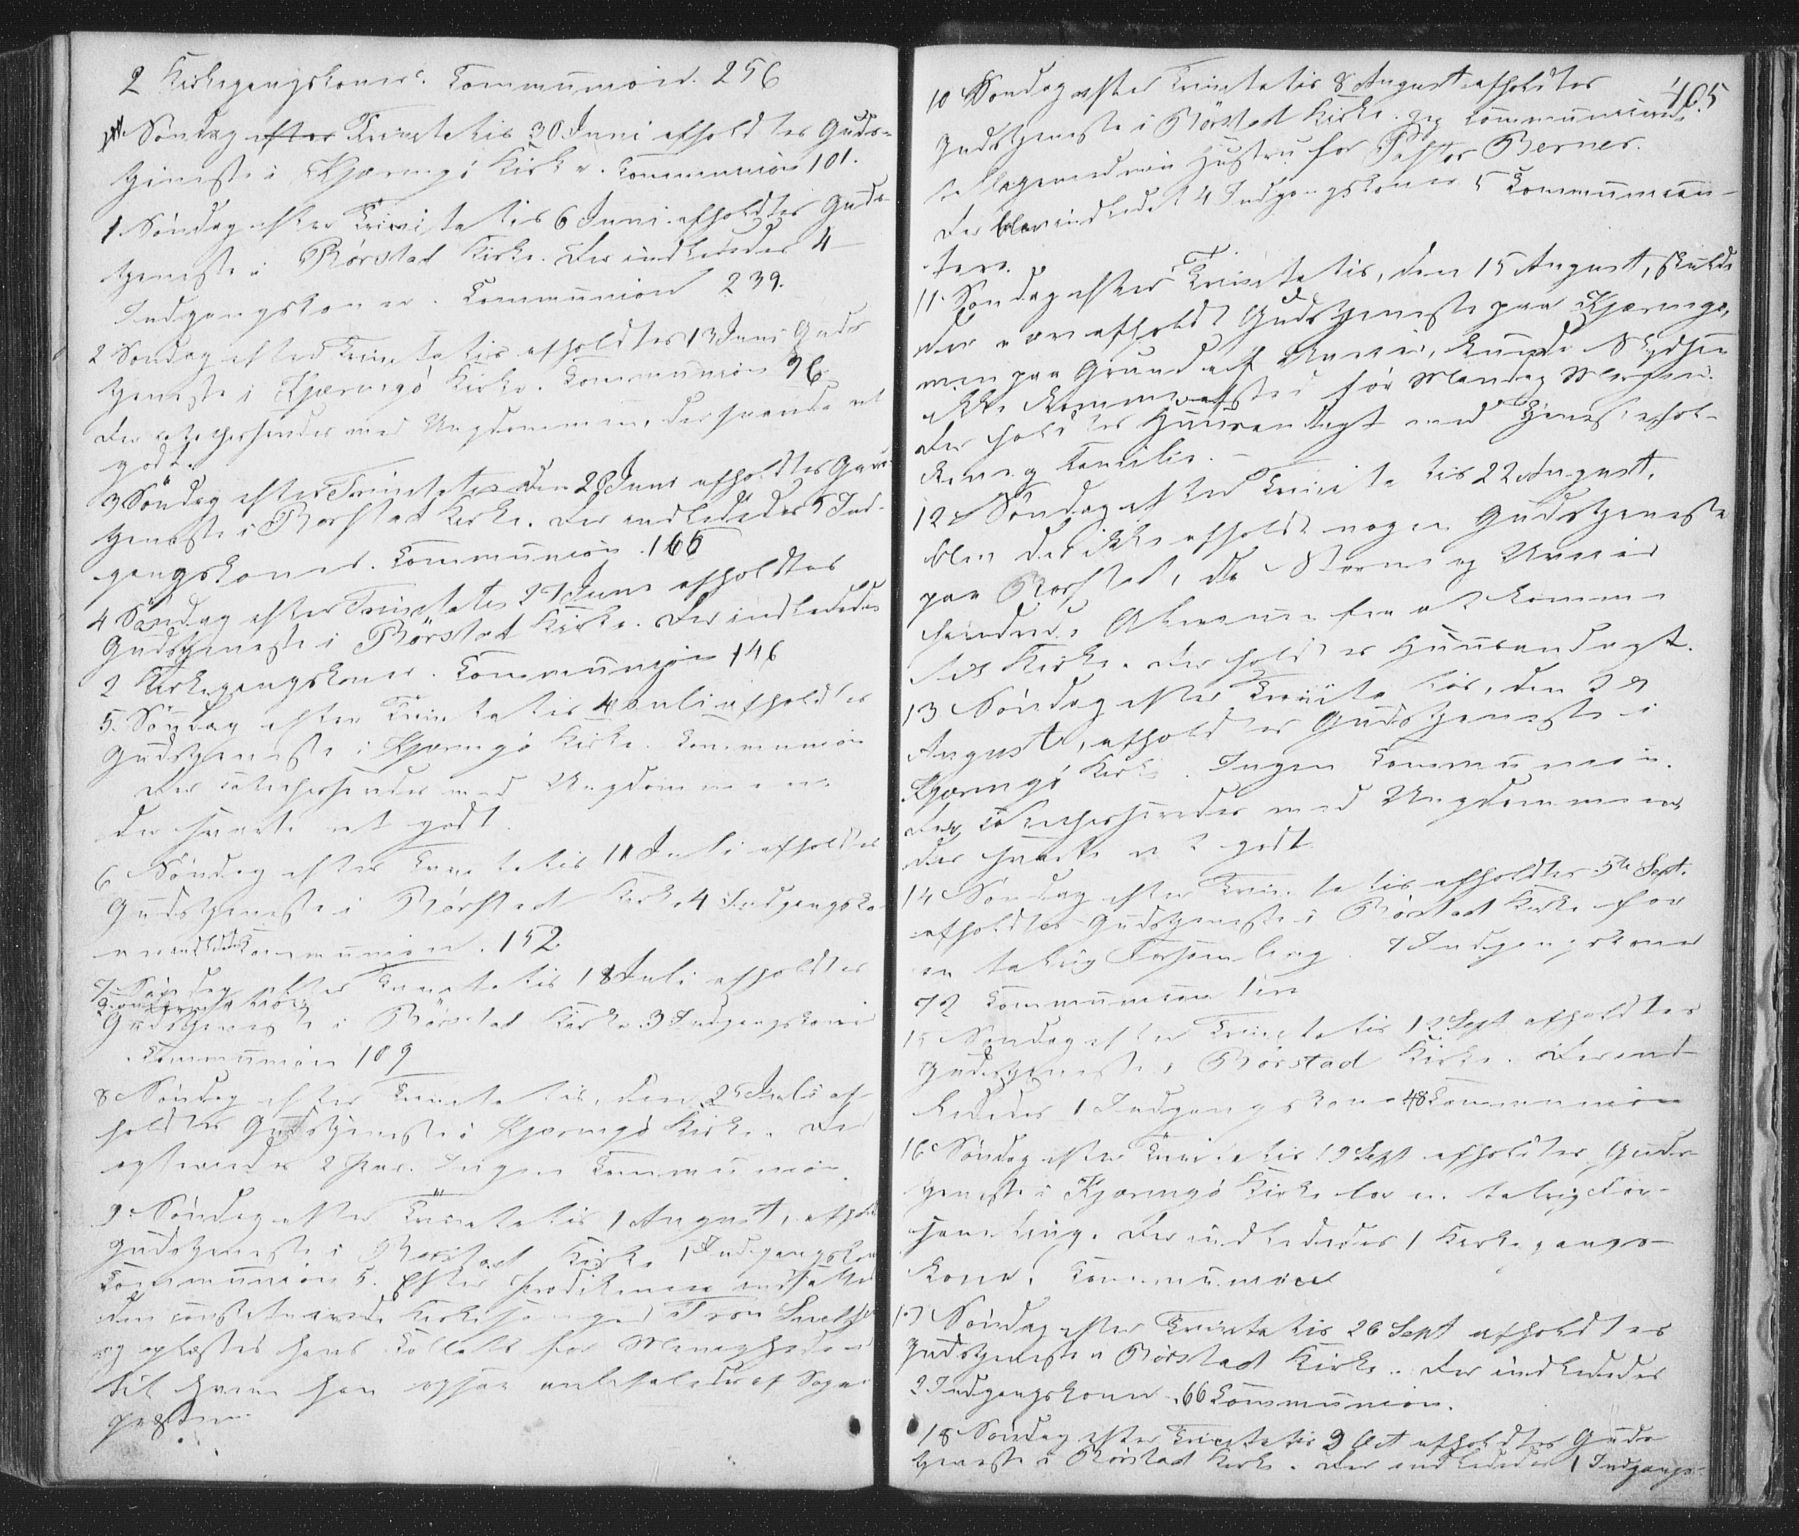 2 Kirkegangskoner. Communion. 256
Søndag efter Trinitatis 30 Juni afholdtes Guds-
tjeneste i Kjæringø Kirke. Communion 101.
1 Søndag efter Trinitatis 6 Juni afholdtes Guds-
tjeneste i Rørstad Kirke. Der indlededes 4
Indgangskoner. Communion 239.
2 Søndag efter Trinitatis afholdtes 13 Juni Guds
tjeneste i Kjæringø Kirke. Communion 96
Der catechiseredes med Ungdommen, der svarede ret
godt.
3 Søndag efter Trinitatis den 20 Juni afholdtes Guds
tjeneste i Rørstad Kirke. Der indlededes 5 Ind-
gangskoner. Communion. 166
4 Søndag efter Trinitatis 27 Juni afholdtes
Gudstjeneste i Rørstad Kirke. Der indlededes
2 Kirkegangskoner. Communion 146
5. Søndag efter Trinitatis 4 Juli afholdtes
Gudstjeneste i Kjæringø Kirke. Communion
Der catechiseredes med Ungdommen
der svarede ret godt.
6 Søndag efter Trinitatis 11 Juli afholdtes
Gudstjeneste i Rørstad Kirke 4 Indgangsko-
ner indledede Communion. 152
7 Søndag efter Trinitatis 18 Juli afholdtes
Gudstjeneste i Rørstad Kirke 3 Indgangskoner
Communion 109
8 Søndag efter Trinitatis, den 25 Juli af-
holdtes Gudstjeneste i Kjæringø Kirke. Der
2 Par. Ingen Communion.
9 Søndag efter Trinitatis 1 August, afholdtes
Gudstjeneste i Rørstad Kirke 1 Indgangskone
Communion 5. Efter Prædikenen indsattes
den constituerede Kirkesanger
og oplæstes hans for Menigheden
til hvem han ogsaa anbefaledes af Sogne
præsten
405
10 Søndag efter Trinitatis 8 August afholdtes
Gudstjeneste i Rørstad Kirke. Jeg communicerede
tilligemed min Hustru for Pastor Berner.
Der blev indledet 4 Indgangskoner 5 Communican-
tere.
11 Søndag efter Trinitatis, den 15 August, skulde
der være afholdt Gudstjeneste paa Kjæringø,
men paa Grund af Uveir, kunde Skydsen
ikke komme afsted før Mandag Morgen.
Der holdtes Huusandagt med Tjenestefol-
kene og Familie.
12 Søndag efter Trinitatis 22 August,
blev der ikke afholdt nogen Gudstjeneste
paa Rørstad, da Storm og Uveir
hindrede Almuen fra at komme
til Kirke. Der holdtes Huusandagt.
13 Søndag efter Trinitatis, den 29
August, afholdtes Gudstjeneste i
Kjæringø Kirke. Ingen Communion.
Der catechiseredes med Ungdommen
der svarede ret godt
14 Søndag efter Trinitatis afholdtes 5te Sept.
afholdtes Gudstjeneste i Rørstad Kirke for
en talrig Forsamling. 7 Indgangskoner
72 Communicantere
15 Søndag efter Trinitatis 12 Sept afholdtes
Gudstjeneste i Rørstad Kirke. Der ind-
lededes 1 Indgangskone 48 Communion
16 Søndag efter Trinitatis 19 Sept afholdtes Guds-
tjeneste i Kjæringø Kirke for en talrig For-
samling. Der indlededes 1 Kirkegangs-
kone. Communion
17 Søndag efter Trinitatis 26 Sept afholdtes
Gudstjeneste i Rørstad Kirke. Der indlededes
2 Indgangskoner. 66 Communion.
18 Søndag efter Trinitatis 3 Oct afholdtes Guds-
tjeneste i Rørstad Kirke. Der indlededes 1 Indgangs-